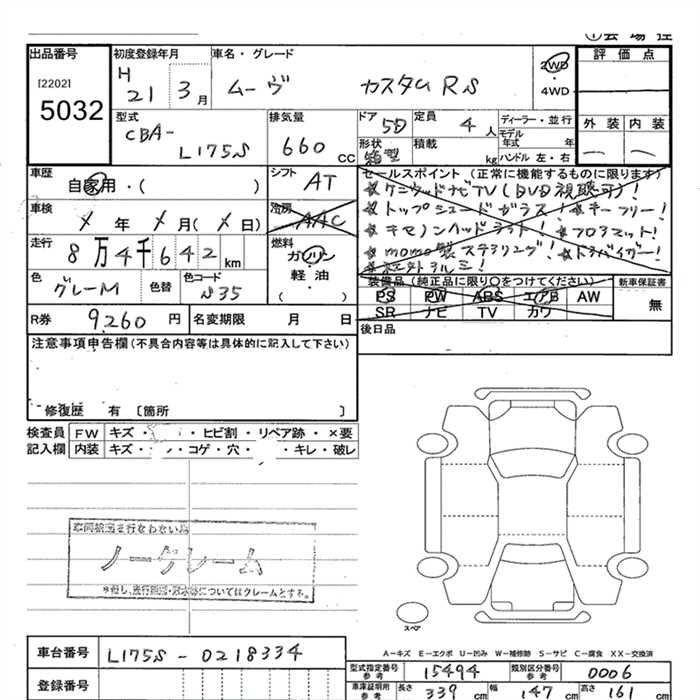 出品番号 初度登録年月 車名・グレード 2WD 4WD 評価点
[2202]
5032
H 21 3月 ムーヴ カスタム RS
型式 CBA-L175S 排気量 660 CC ドア 5D 定員 4人 ディーラー・並行
形状 箱型 積載 kg モデル年式 年 ハンドル 左・右
外装 内装
車歴 自家用・( ) シフト AT
セールスポイント (正常に機能するものに限ります)
★ケンウッドナビTV(DVD視聴可)!
★トップシェードガラス! ★キーフリー!
★キセノンヘッドライト! ★フロアマット!
★momo製ステアリング! ★ドアバイザー!
★社外アルミ!
車検 年 月( 日) 冷房 AAC
走行 8万4千642km 燃料 ガソリン 軽・油 ( )
色 グレーM 色替 色コード S35
装備品 (純正品に限り○をつけてください) 新車保証書
PS PW ABS エアB AW 無
SR ナビ TV カワ
R券 9,260 円 名変期限 月 日
後日品
注意事項申告欄 (不具合内容等は具体的に記入して下さい)
修復歴 有 〔箇所 〕
検査員 FW キズ・ ・ヒビ割・リペア跡・×要
記入欄 内装 キズ・ ・コゲ・穴・ ・キレ・破レ
車両搬送を行なわない為
ノークレーム
スペア
A-キズ E-エクボ U-凹み W-補修跡 S-サビ C-腐食 XX-交換済
車台番号 L175S-0218334
登録番号
型式指定番号 参考 15494 類別区分番号 参考 0006
車庫証明用 参考 長さ 339 cm 幅 147 cm 高さ 161 cm